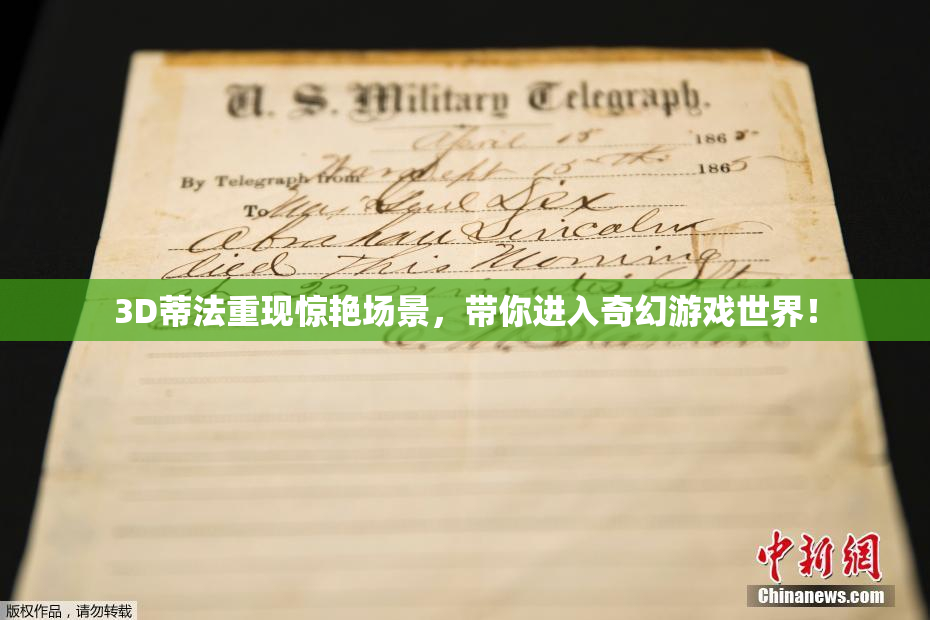 U. S. Military Telegraph.
April 15 1865
By Telegraph from War Dept 15th 1865
To Maj Genl Dix
Abraham Lincoln
died This Morning
22 minutes after
3D蒂法重现惊艳场景，带你进入奇幻游戏世界！
E. M. Stanton
中新网
Chinanews.com
版权作品，请勿转载